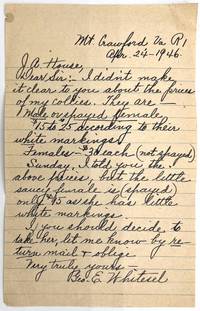 Mt. Crawford Va R1
Apr. 24-1946.
J. A. House,
Dear Sir:- I didn't make
it clear to you about the prices
of my Collies. They are -
Male or spayed female,
$15 to 25 according to their
white markings.
Females - $ each (not spayed)
Sunday, I told you the
above prices, but the little
saucy female is (spayed)
only $15 as she has little
white markings.
If you should decide to
take her, let me know by re-
turn mail & oblige
Very truly yours -
Geo. E. Whitesel